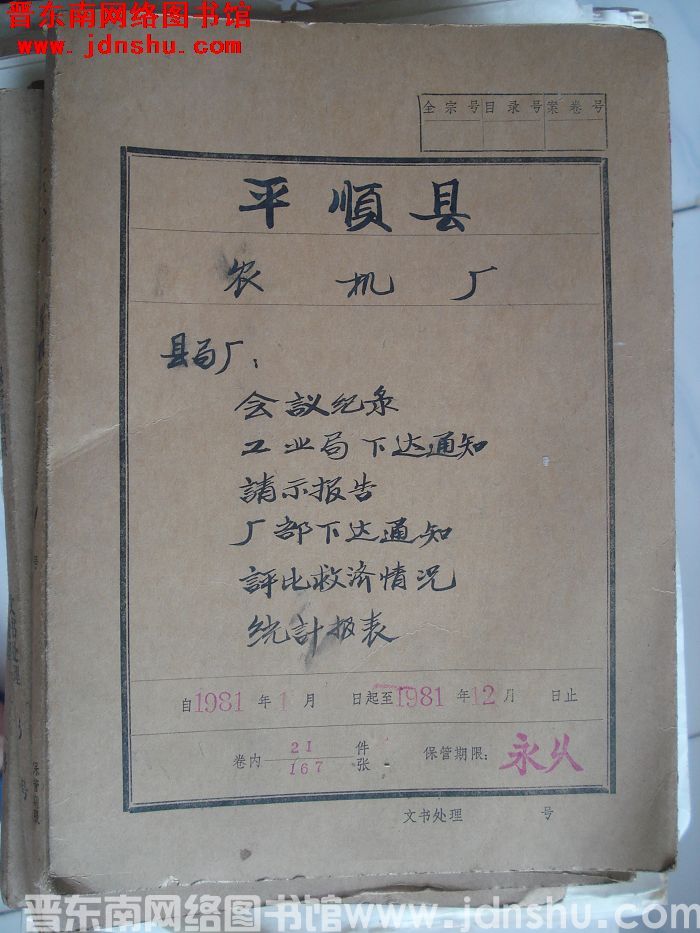 晋东南网络图书馆
www.jdnshu.com
全宗号 目录号 案卷号
平順县
农机厂
县局厂:
会議纪录
工业局下达通知
請示报告
厂部下达通知
評比救济情况
统計报表
自1981年1月 日起至1981年12月 日止
卷内 21 件
167 张
保管期限: 永久
文书处理 号
号
保管期限
号
晋东南网络图书馆www.jdnshu.com